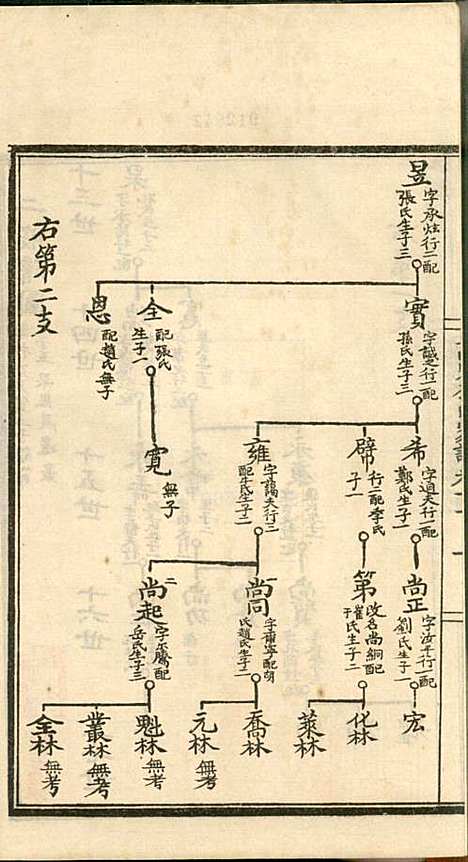 昱
字承炫行二配
張氏生子三
實
字誠之行一配
孫氏生子三
全
配張氏
生子一
恩
配趙氏無子
希
字道夫行一配
鄭氏生子一
辟
行二配李氏
子一
雍
字藹夫行三
配牛氏生子二
寬
無子
尚正
字汝平行一配
劉氏生子一
第
改名尚絅配
崔氏生子二
尚
配胡
氏趙氏生子二
二
尚起
字示騰配
岳氏生子三
宏
化林
萊林
喬林
元林 無考
魁林 無考
叢林 無考
全林 無考
右第二支